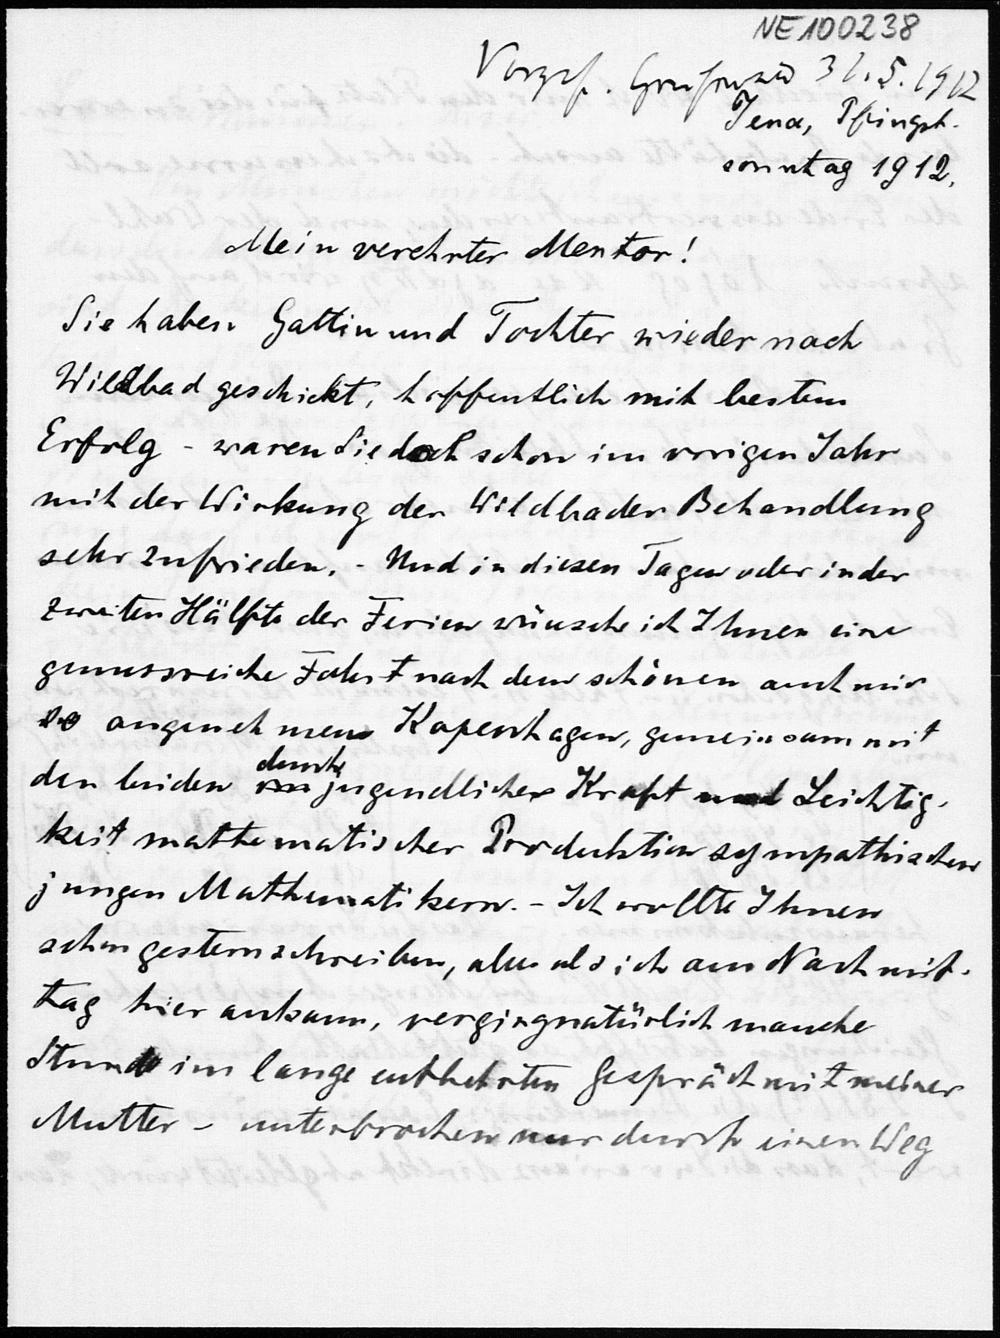 NE100238
31.5.1912
Jena, Pfingst-
sonntag 1912.
Mein verehrter Mentor!
Sie haben Gattin und Tochter wieder nach
Wildbad geschickt, hoffentlich mit bestem
Erfolg - waren Sie doch schon im vorigen Jahr
mit der Wirkung der Wildbader Behandlung
sehr zufrieden. - Und in diesen Tagen oder in der
zweiten Hälfte der Ferien wünsche ich Ihnen eine
genussreiche Fahrt nach dem schönen auch mir
so angenehmen Kopenhagen, gemeinsam mit
den beiden durch jugendliche Kraft und Leichtig-
keit mathematischer Produktion sympathischen
jungen Mathematikern. - Ich wollte Ihnen
schon gestern schreiben, aber als ich am Nachmit-
tag hier ankam, verging natürlich manche
Stunde im lange entbehrten Gespräch mit meiner
Mutter - unterbrochen nur durch einen Weg